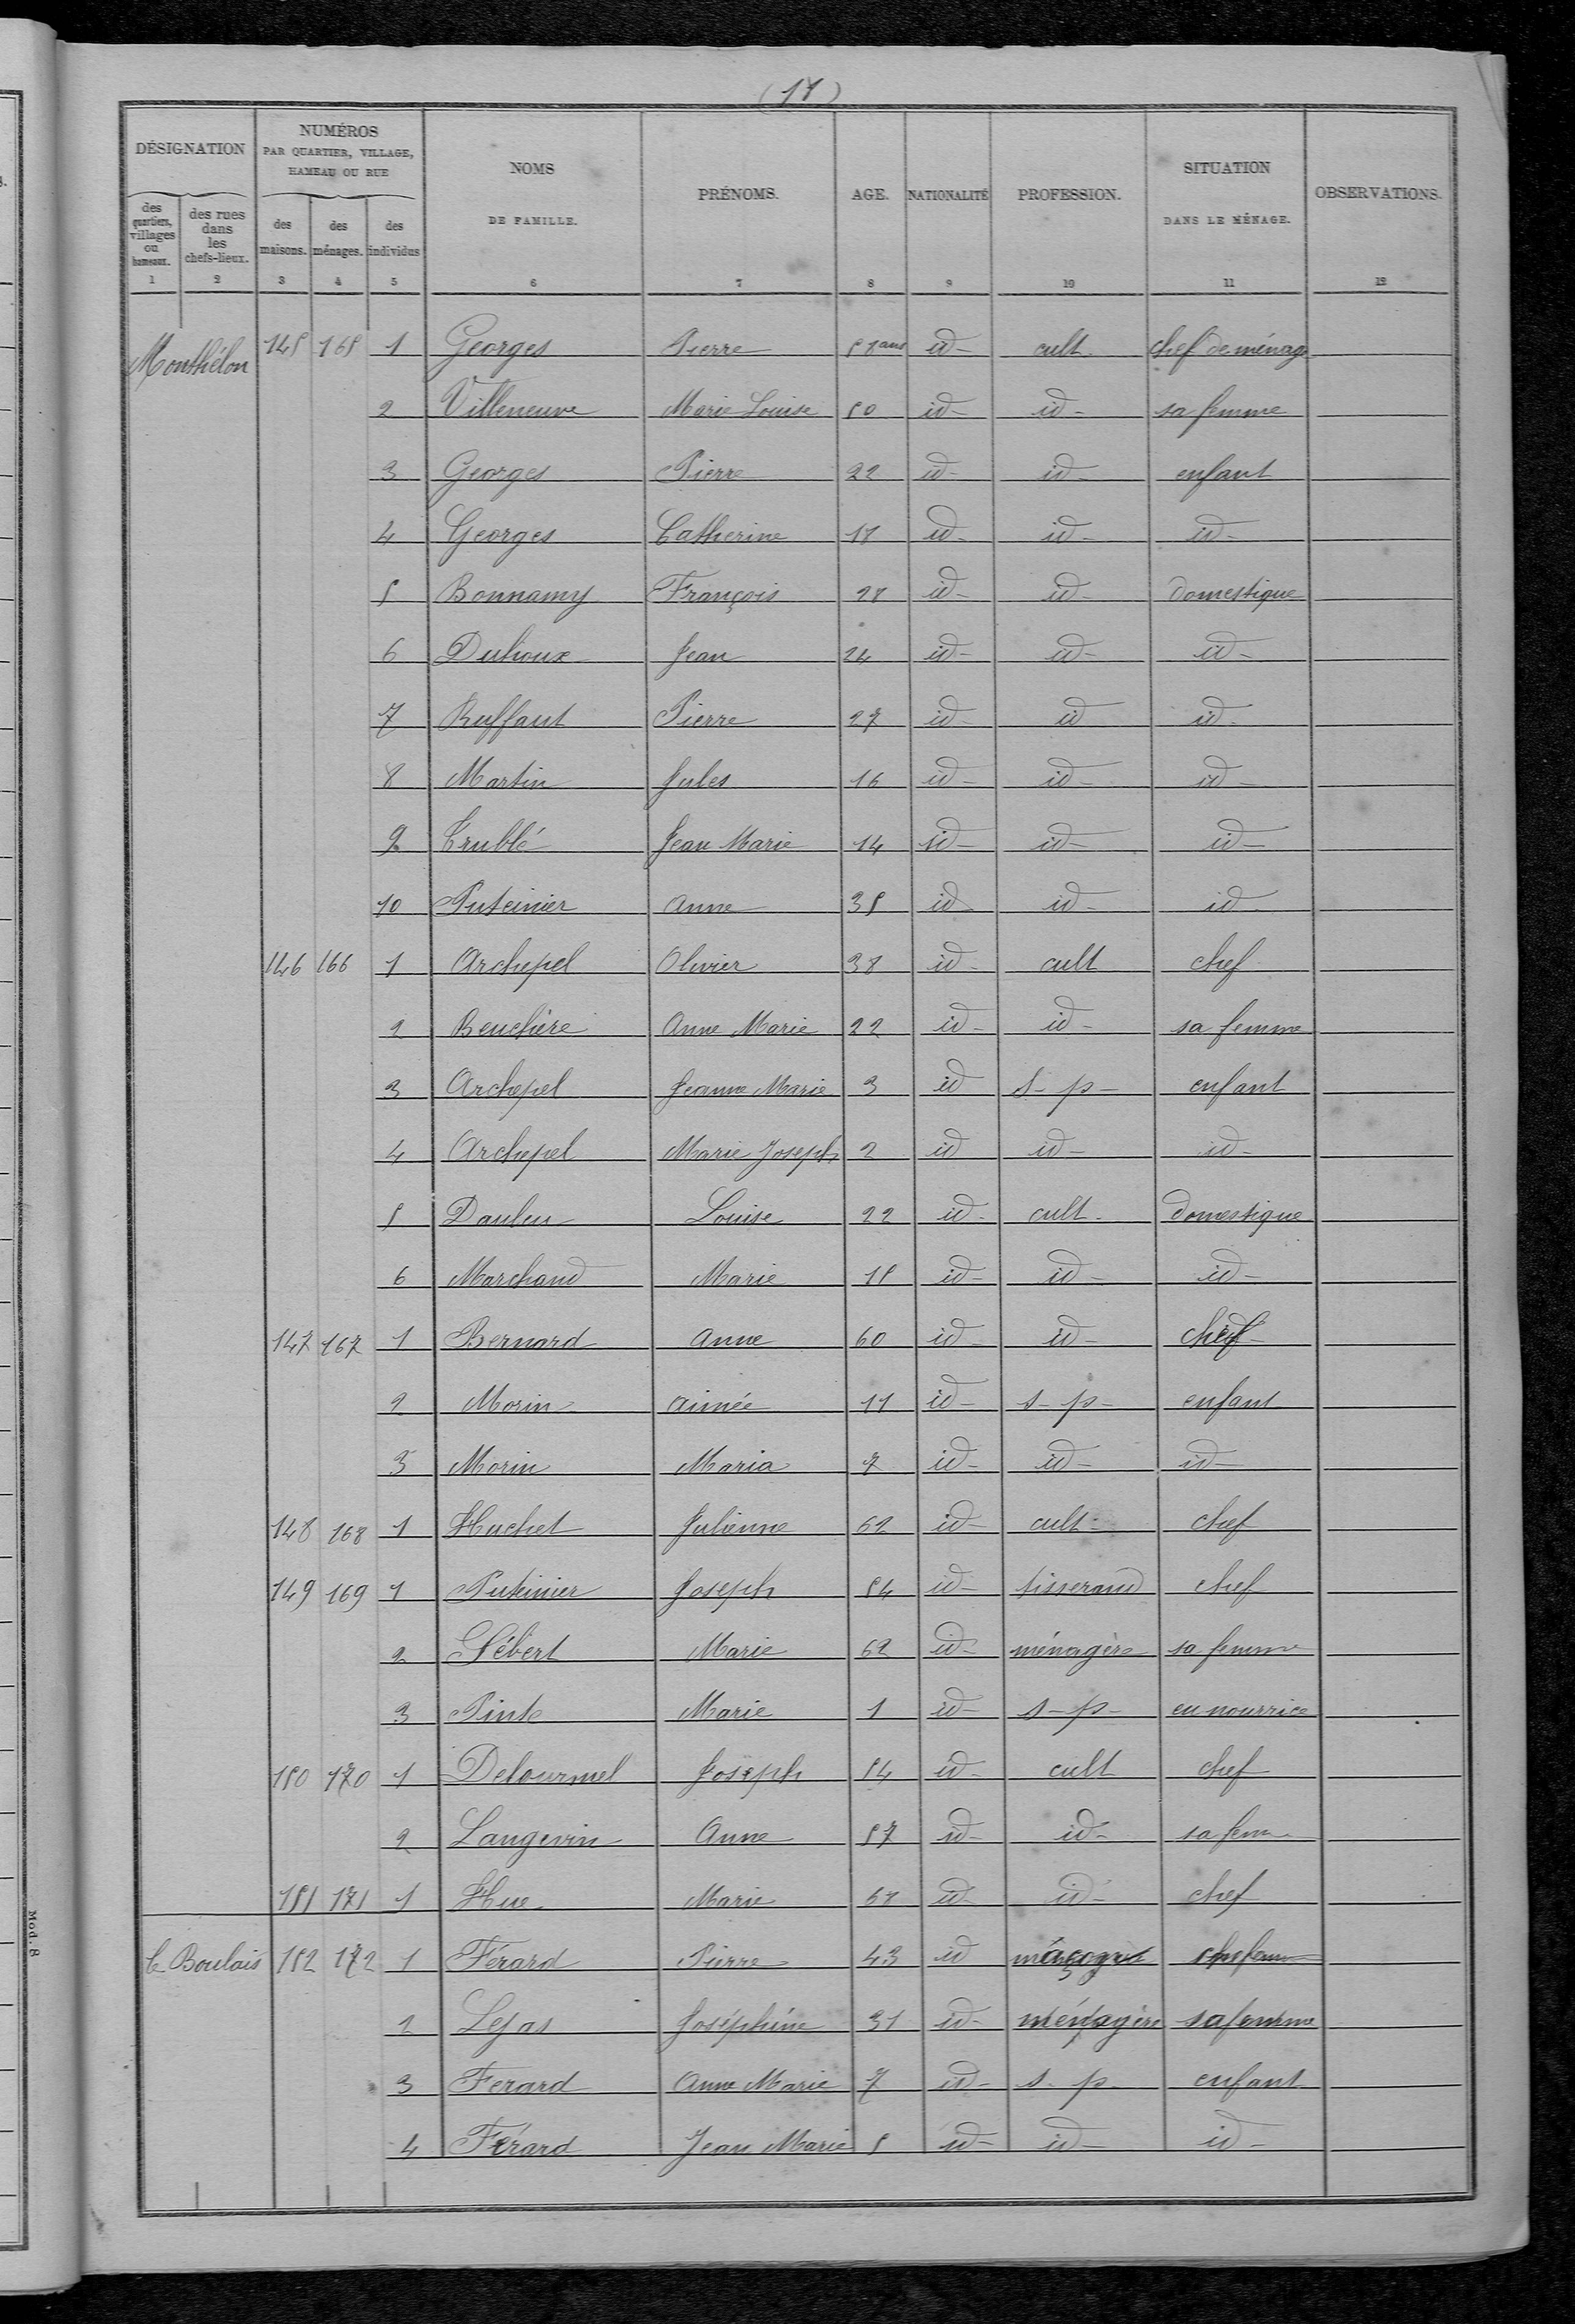 (17)
DÉSIGNATION NUMÉROS PAR QUARTIER, VILLAGE, HAMEAU OU RUE NOMS DE FAMILLE. PRÉNOMS. AGE. NATIONALITÉ PROFESSION. SITUATION DANS LE MÉNAGE. OBSERVATIONS.
des quartiers, villages ou hameaux. des rues dans les chefs-lieux. des maisons. des ménages. des individus
1 2 3 4 5 6 7 8 9 10 11 12
Monthélon 145 165 1 Georges Pierre ans id cult. chef de ménage
2 Villeneuve Marie Louise 50 id id sa femme
3 Georges Pierre 22 id id enfant
4 Georges Catherine id id id
5 Bonnamy François 28 id id domestique
6 Dutioux Jean 24 id id id
7 Ruffaut Pierre 27 id id id
8 Martin Jules 16 id id id
9 Trublé Jean Marie 14 id id id
10 Puteinier Anne 35 id id id
146 166 1 Archepel Olivier 38 id cult chef
2 Beuchère Anne Marie 22 id id sa femme
3 Archepel Jeanne Marie 3 id s-p- enfant
4 Archepel Marie Joseph 2 id id id
5 Dauleu Louise 22 id cult. domestique
6 Marchand Marie 15 id id id
147 167 1 Bernard Anne 60 id id chef
2 Morin aimée 11 id s-p- enfant
3 Morin Maria 7 id id id
148 168 1 Huchet Julienne 62 id cult chef
149 169 1 Puteinier Joseph 54 id tisserand chef
2 Hébert Marie 62 id ménagère sa femme
3 Pinte Marie 1 id s-p- en nourrice
150 170 1 Delourmel Joseph 54 id cult chef
2 Langevin Anne 57 id id sa fem
151 171 1 Hue Marie id id chef
C. Boulais 152 172 1 Férard Pierre 43 id
2 Lejas Joséphine 31 id ménagère sa femme
3 Ferard Anne Marie 7 id s-p- enfant
4 Férard Jean Marie 5 id id id
Mod. 8